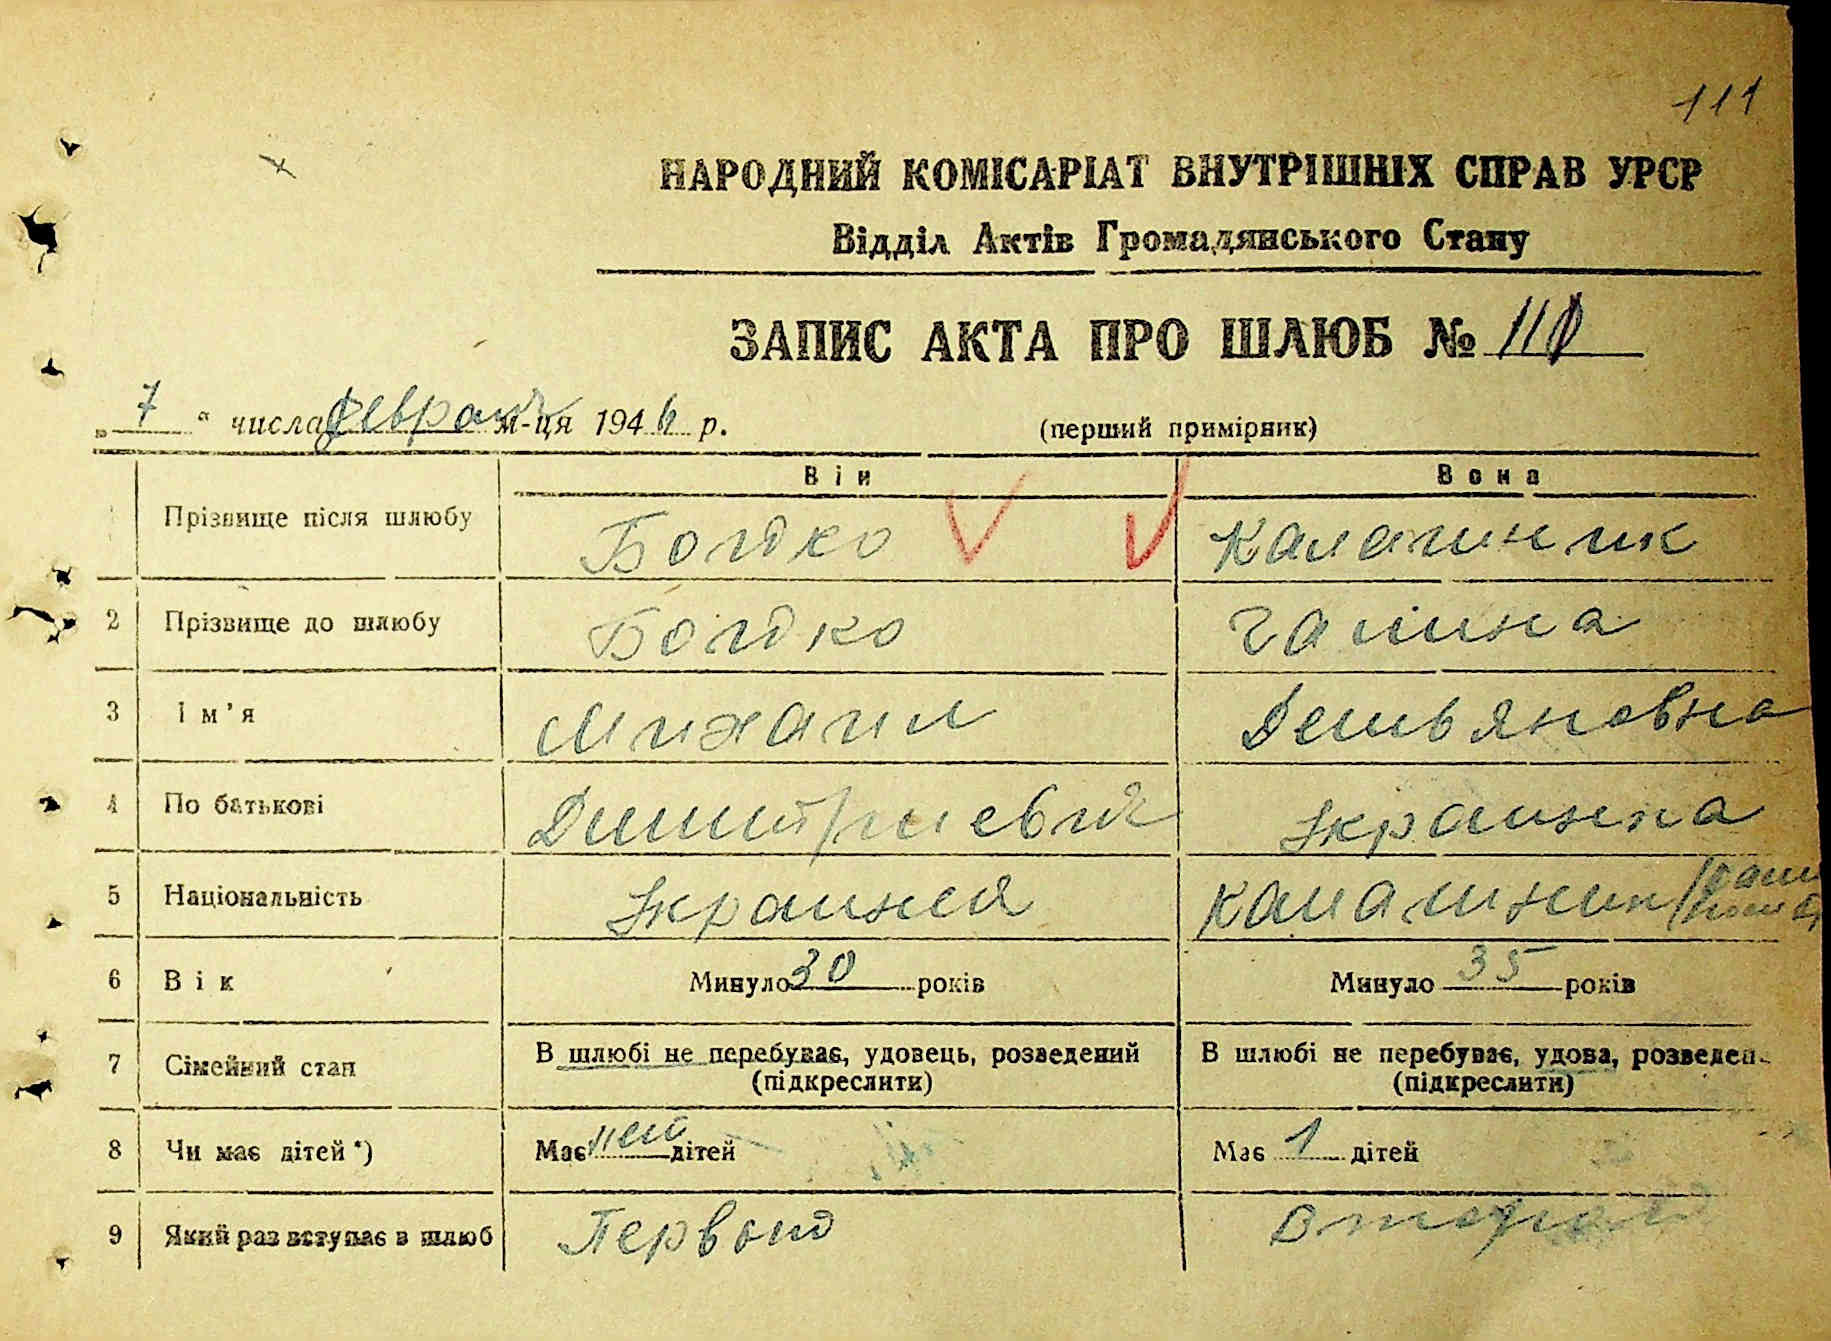 111
НАРОДНИЙ КОМІСАРІАТ ВНУТРІШНІХ СПРАВ УРСР
Відділ Актів Громадянського Стану
ЗАПИС АКТА ПРО ШЛЮБ № 110
„ 7 “ числа февраля м-ця 1946 р. (перший примірник)
Він Вона
Прізвище після шлюбу Бойко Калашник
2 Прізвище до шлюбу Бойко Галина
3 Ім'я Михаил Демьяновна
4 По батькові Дмитриевич Украинка
5 Національність Украинец Калашник
6 Вік Минуло 30 років Минуло 35 років
7 Сімейний стан В шлюбі не перебуває, удовець, розведений В шлюбі не перебуває, удова, розведен
(підкреслити) (підкреслити)
8 Чи має дітей *) Має нет дітей Має 1 дітей
9 Який раз вступає в шлюб Первый Второй